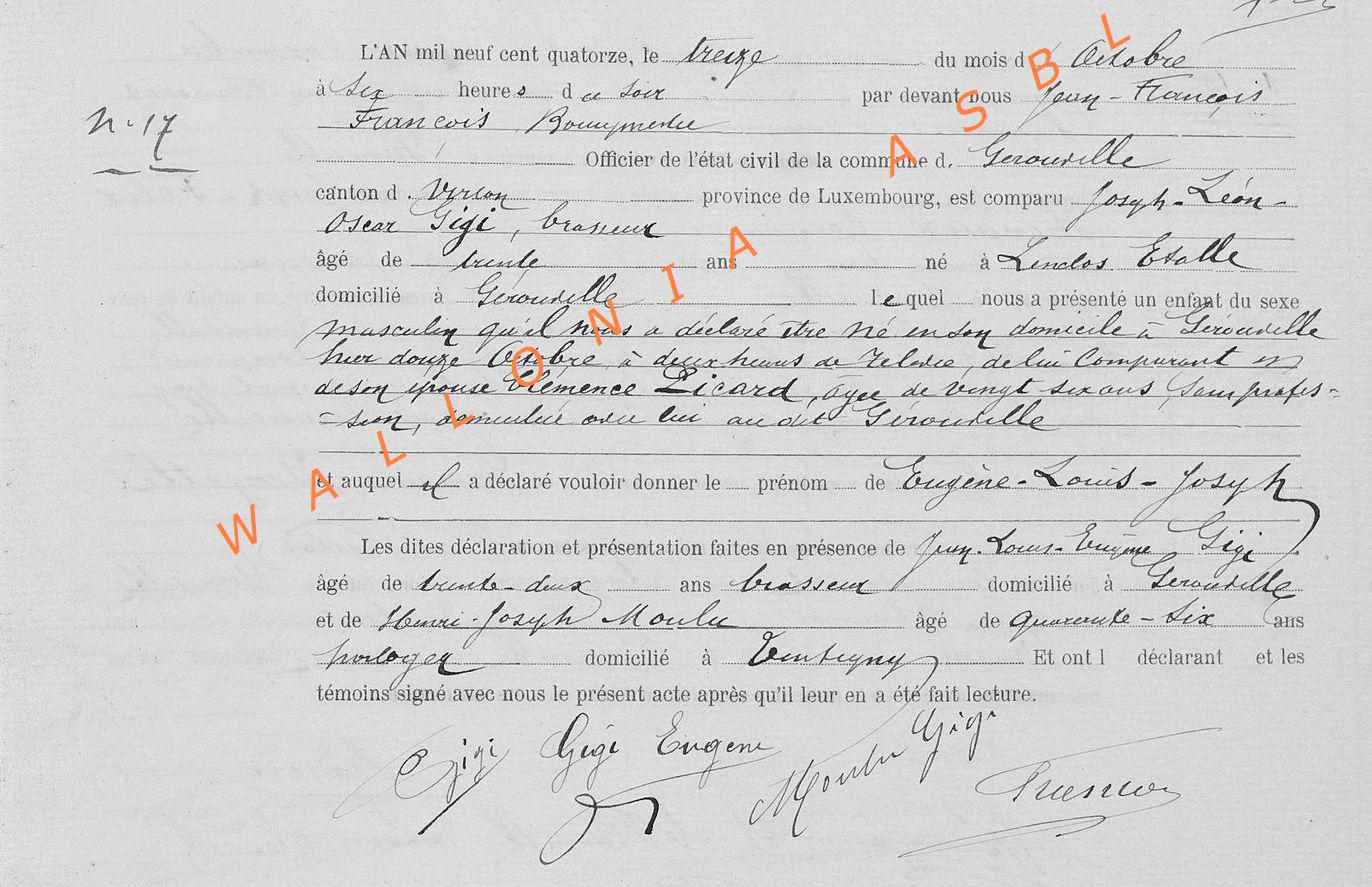 L'AN mil neuf cent quatorze, le treize du mois d Octobre
à six heures d u soir par devant nous Jean-François
N° 17
François
Officier de l'état civil de la commune d. Gérouville
canton d. Virton province de Luxembourg, est comparu Joseph-Léon-
Oscar Gigi, brasseur
âgé de trente ans né à Lenclos Etalle
domicilié à Gérouville lequel nous a présenté un enfant du sexe
masculin qu'il nous a déclaré être né en son domicile à Gérouville
hier douze Octobre, à deux heures de relevée, de lui Comparant et
de son épouse Clémence Picard, âgée de vingt six ans, sans profes-
-sion, domiciliée avec lui au dit Gérouville
et auquel il a déclaré vouloir donner le prénom de Eugène-Louis-Joseph
Les dites déclaration et présentation faites en présence de Jean-Louis-Eugène Gigi
âgé de trente-deux ans brasseur domicilié à Gérouville
et de Henri-Joseph Moulu âgé de quarante-six ans
horloger domicilié à Tintigny Et ont l déclarant et les
témoins signé avec nous le présent acte après qu'il leur en a été fait lecture.
Gigi Gigi Eugène Moulu Gigi
WALLONIA ASBL